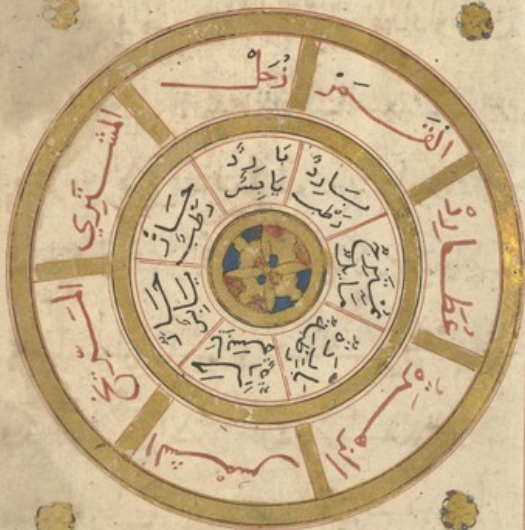 زحل
القمر
عطارد
الزهرة
الشمس
المريخ
المشتري
بارد
يابس
بارد
رطب
ممتزج
باردة
الحارة
اليابسة
حار
يابس
حار
رطب